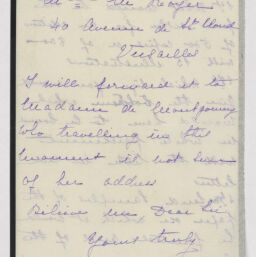 40 Avenue de St Cloud
Versailles
I will forward it to
Madame de Montgomery
who travelling in this
moment is not sure
of her address
Believe me Dear Sir
Yours truly